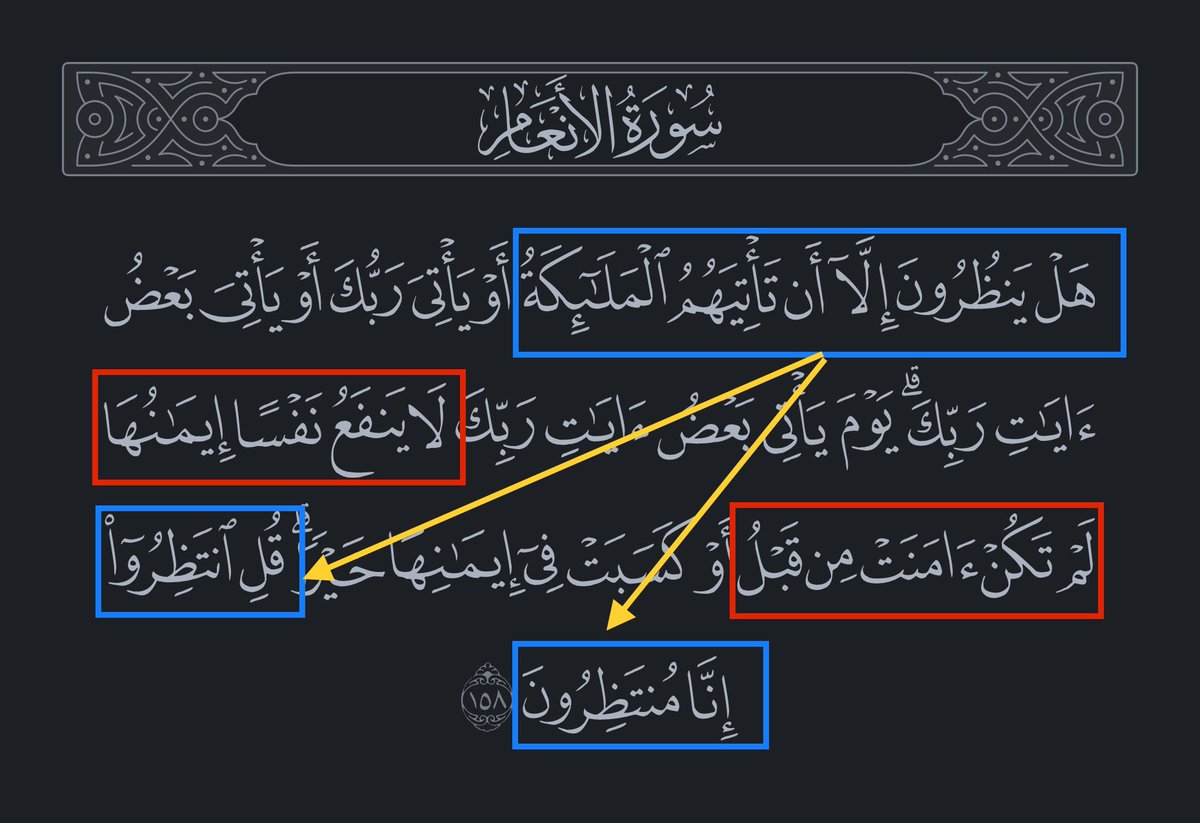 سُورَةُ الأَنْعَامِ
هَلْ يَنظُرُونَ إِلَّآ أَن تَأْتِيَهُمُ ٱلْمَلَٰٓئِكَةُ أَوْ يَأْتِىَ رَبُّكَ أَوْ يَأْتِىَ بَعْضُ
ءَايَٰتِ رَبِّكَ ۗ يَوْمَ يَأْتِى بَعْضُ ءَايَٰتِ رَبِّكَ لَا يَنفَعُ نَفْسًا إِيمَٰنُهَا
لَمْ تَكُنْ ءَامَنَتْ مِن قَبْلُ أَوْ كَسَبَتْ فِىٓ إِيمَٰنِهَا خَيْرًا ۗ قُلِ ٱنتَظِرُوٓا۟
إِنَّا مُنتَظِرُونَ ١٥٨